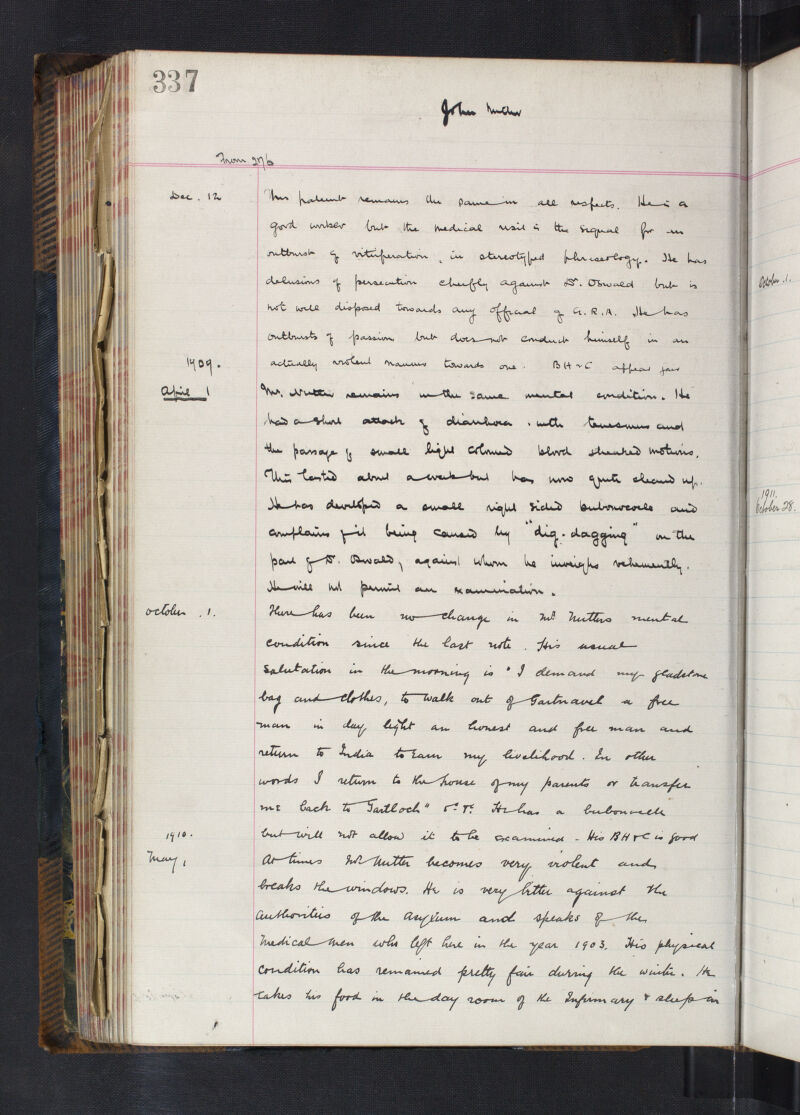 337
John Nutter
From 276
Dec. 12 This patient remains the same in all respects. He is a
good worker but the medical visit is the signal for an
outburst of vituperation, in stereotyped phraseology. He has
delusions of persecution chiefly against Dr. Oswald but is
not well disposed towards any official of G.R.A. He has
outbursts of passion but does not conduct himself in an
actually violent manner towards one. BH & C appear fair
1909.
April 1 Mr. Nutter remains in the same mental condition. He
had a short attack of diarrhoea with tenesmus and
the passage of small light coloured blood streaked motions.
This lasted about a week but has now quite cleared up.
He has developed a small right sided bubonocele and
complains of it being caused by "dig-dagging" on the
part of Dr. Oswald, against whom he inveighs vehemently.
He will not permit an examination.
October 1. There has been no change in Mr Nutters mental
condition since the last note. His usual
salutation in the morning is "I demand my gladstone
bag and clothes, to walk out of Gartnavel a free
man in day light an honest and free man and
return to India to earn my livelihood. In other
words I return to the house of my parents or transfer
me back to Gartloch" &c. &c. He has a bubonocele
but will not allow it to be examined - His BH & C is good
1910.
May 1 At times Mr Nutter becomes very violent and
breaks the windows. He is very bitter against the
authorities of the asylum and speaks of the
medical men who left here in the year 1903. His physical
condition has remained pretty fair during the winter. He
takes his food in the day room of the Infirmary & sleeps in
October 1.
1911.
October 28.